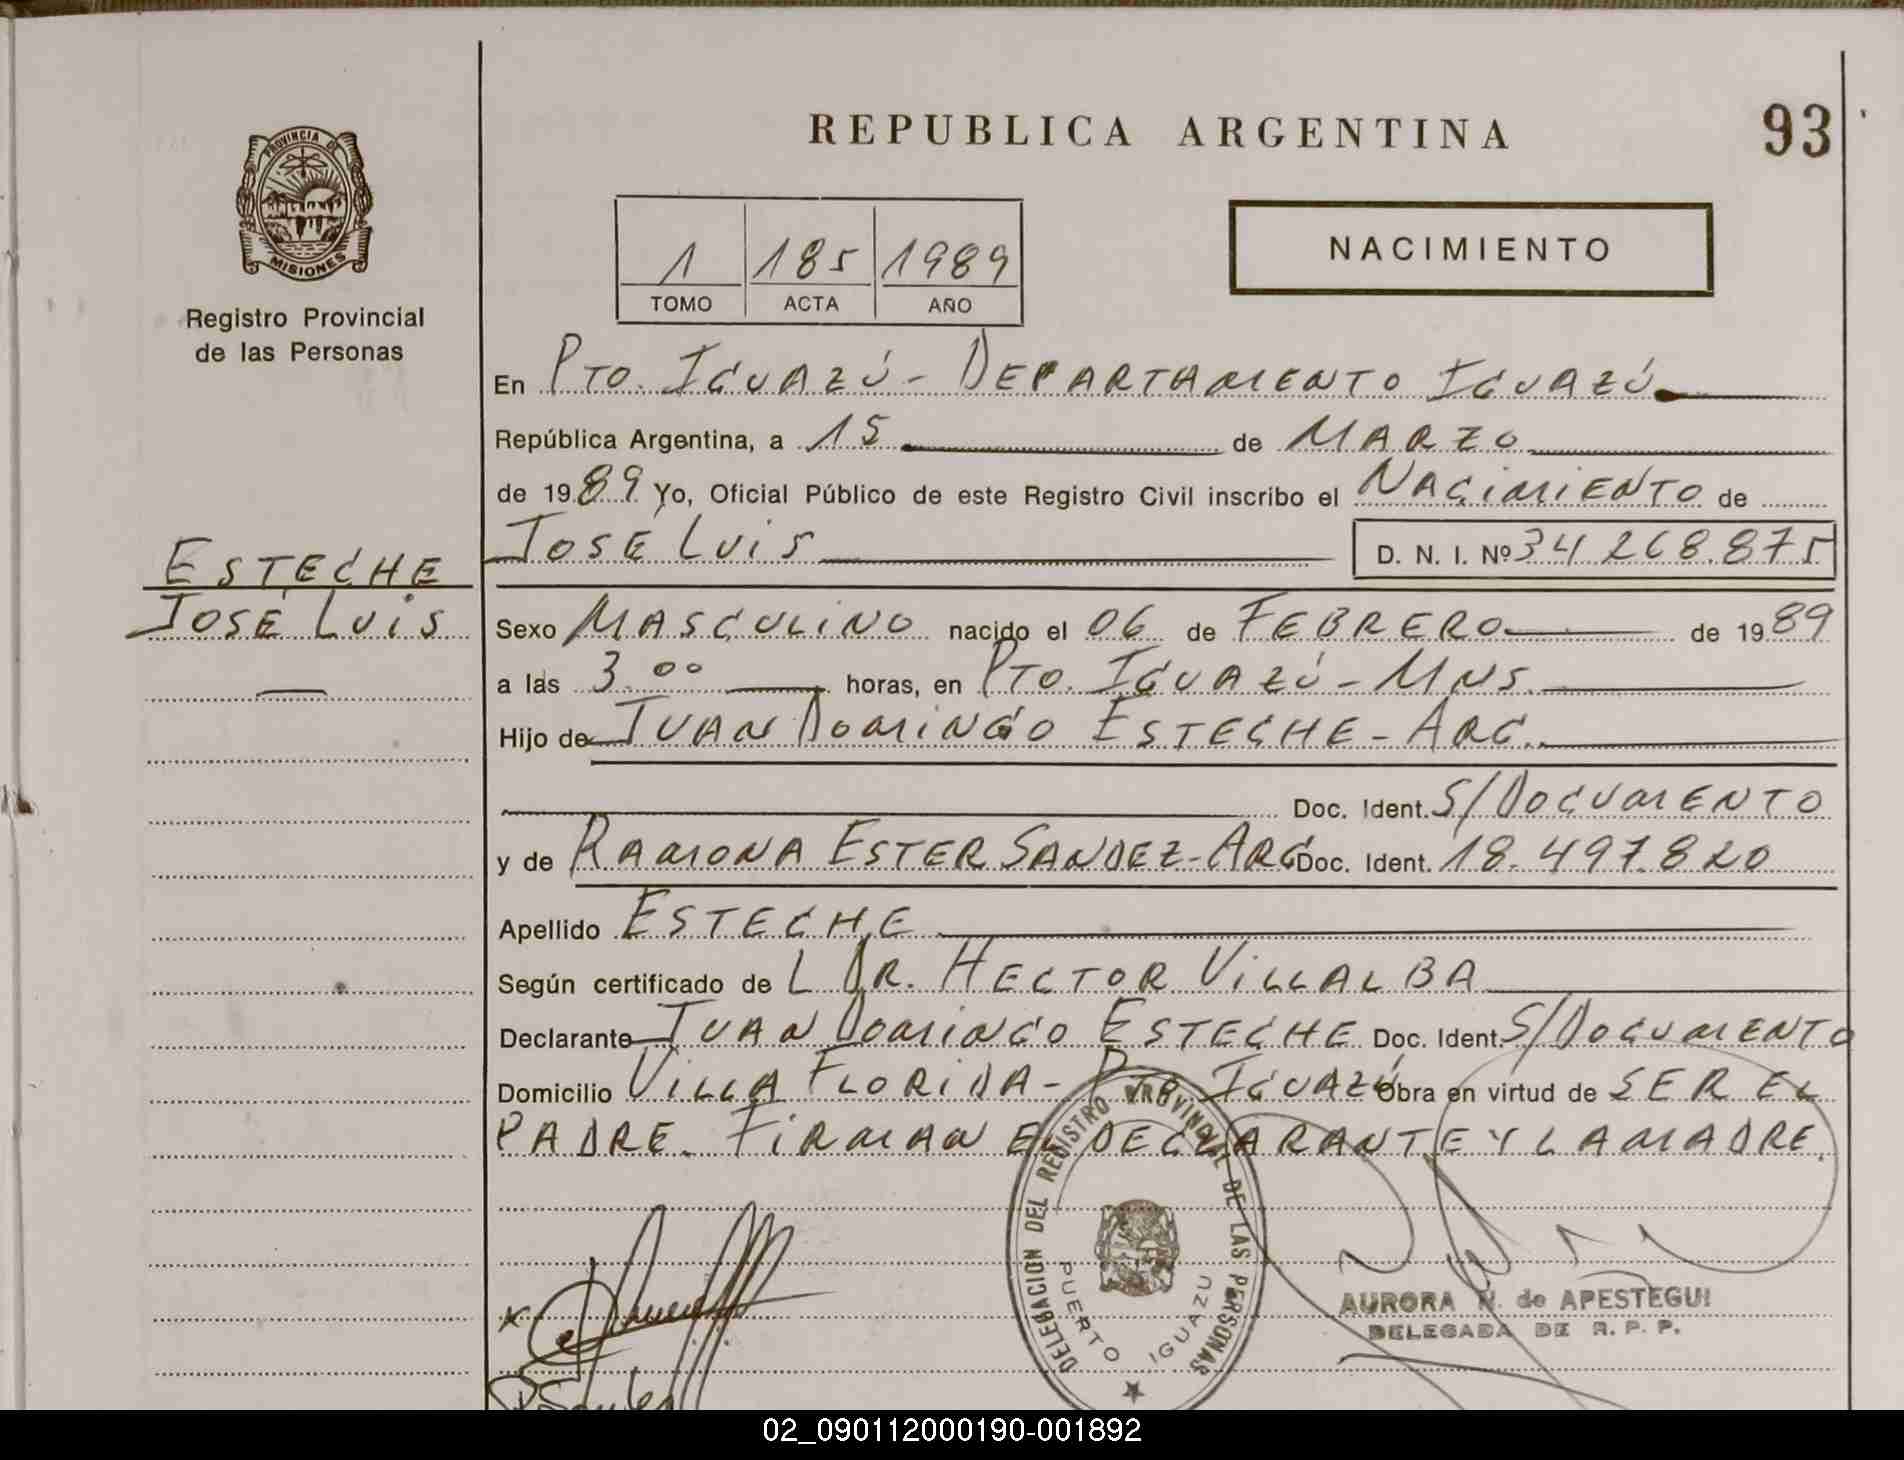 REPUBLICA ARGENTINA
93
PROVINCIA DE
MISIONES
Registro Provincial
de las Personas
1 185 1989
TOMO ACTA AÑO
NACIMIENTO
En PTO. IGUAZÚ - DEPARTAMENTO IGUAZÚ
República Argentina, a 15 de MARZO
de 1989 Yo, Oficial Público de este Registro Civil inscribo el NACIMIENTO de
JOSÉ LUIS D. N. I. Nº 34.268.875
ESTECHE
JOSÉ LUIS
Sexo MASCULINO nacido el 06 de FEBRERO de 1989
a las 3.00 horas, en PTO. IGUAZÚ - MNS.
Hijo de JUAN DOMINGO ESTECHE - ARG.
Doc. Ident. S/DOCUMENTO
y de RAMONA ESTER SANDEZ - ARG Doc. Ident. 18.497.820
Apellido ESTECHE
Según certificado de L DR. HECTOR VILLALBA
Declarante JUAN DOMINGO ESTECHE Doc. Ident. S/DOCUMENTO
Domicilio VILLA FLORIDA - PTO IGUAZÚ Obra en virtud de SER EL
PADRE. FIRMAN EL DECLARANTE Y LA MADRE.
DELEGACION DEL REGISTRO PROVINCIAL DE LAS PERSONAS
PUERTO IGUAZU
AURORA N. de APESTEGUI
DELEGADA DE R. P. P.
02_090112000190-001892